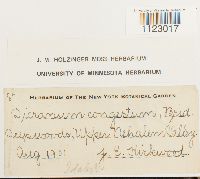 1123017
J. M. HOLZINGER MOSS HERBARIUM
UNIVERSITY OF MINNESOTA HERBARIUM
HERBARIUM OF THE NEW YORK BOTANICAL GARDEN
Dicranum congestum, Brid.
Deep woods, Upper Nehalem Valley
Aug. J. E. Kirkwood